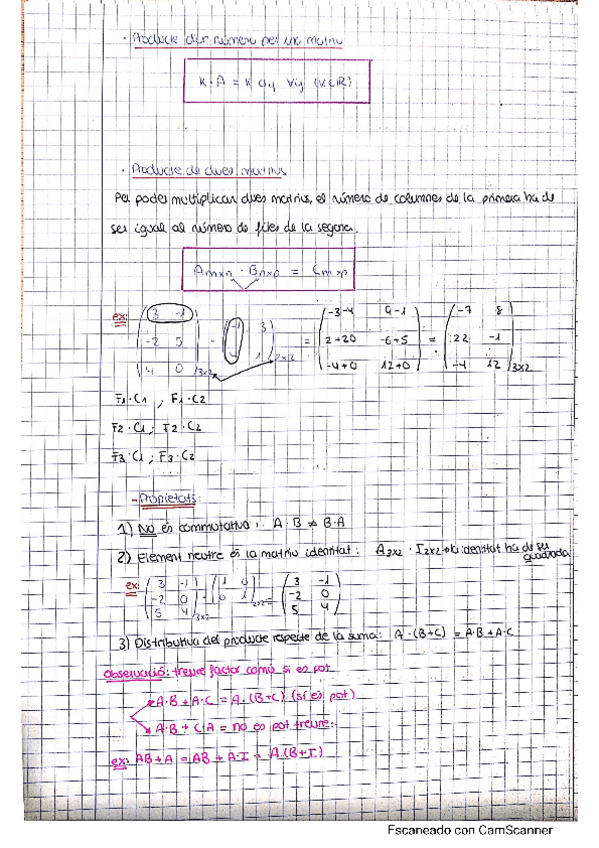 · Producte d'un número per una matriu
K · A = K · aij ∀ij (K∈ℝ)
· Producte de dues matrius
Per poder multiplicar dues matrius, el número de columnes de la primera ha de
ser igual al número de files de la segona.
Amxn · Bnxp = Cmxp
ex: (3 -1 / -2 5 / 4 0)3x2 · (-1 3 / 4 1)2x2 = (-3-4 9-1 / 2+20 -6+5 / -4+0 12+0) = (-7 8 / 22 -1 / -4 12)3x2
F1·C1 ; F1·C2
F2·C1 ; F2·C2
F3·C1 ; F3·C2
- Propietats:
1) No és commutativa: A·B ≠ B·A
2) Element neutre és la matriu identitat: A3x2 · I2x2 → la identitat ha de ser quadrada
ex: (3 -1 / -2 0 / 5 4)3x2 · (1 0 / 0 1)2x2 = (3 -1 / -2 0 / 5 4)
3) Distributiva del producte respecte de la suma: A·(B+C) = A·B + A·C
Observació: treure factor comú si es pot
A·B + A·C = A·(B+C) (si es pot)
A·B + C·A = no es pot treure.
ex: AB + A = AB + A·I = A(B+I)
Escaneado con CamScanner